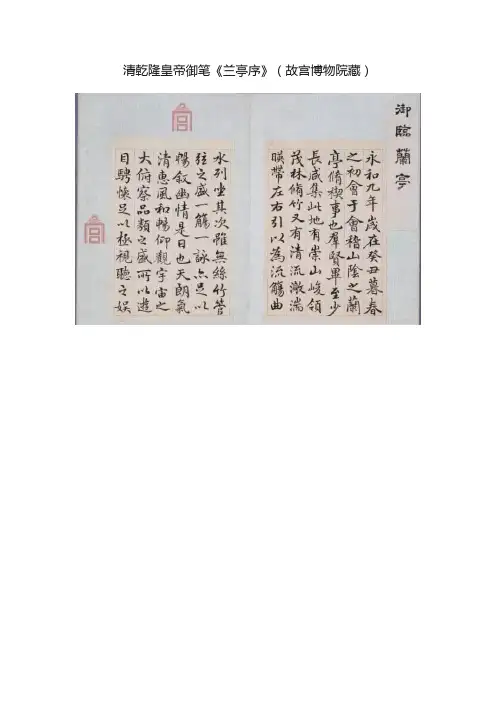 清乾隆皇帝御笔《兰亭序》(故宫博物院藏)
御臨蘭亭
永和九年歲在癸丑暮春
之初會于會稽山陰之蘭
亭脩稧事也羣賢畢至少
長咸集此地有崇山峻領
茂林脩竹又有清流激湍
暎帶左右引以為流觴曲
水列坐其次雖無絲竹管
弦之盛一觴一詠亦足以
暢叙幽情是日也天朗氣
清惠風和暢仰觀宇宙之
大俯察品類之盛所以遊
目騁懷足以極視聽之娱